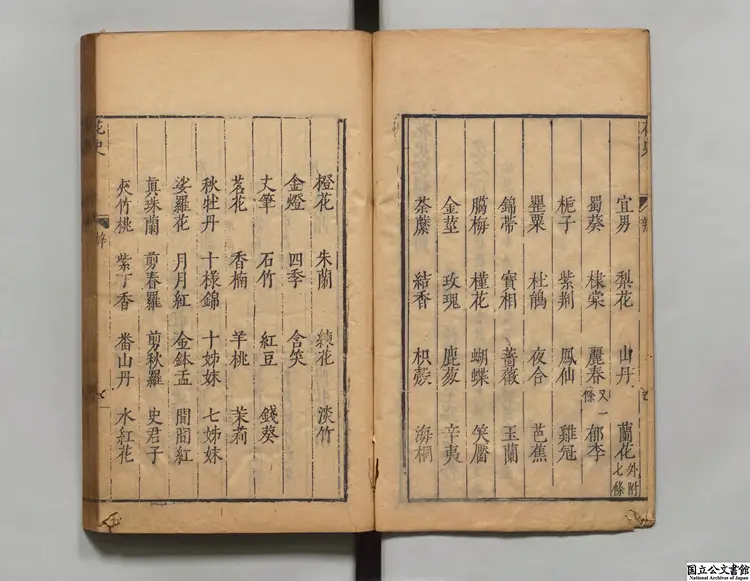 宜男 梨花 山丹 蘭花 外附七條
蜀葵 棣棠 麗春 又一條 郁李
梔子 紫荆 鳳仙 雞冠
罌粟 杜鵑 夜合 芭蕉
錦帶 寳相 薔薇 玉蘭
臈梅 槿花 蝴蝶 笑靨
金莖 玫瑰 鹿葱 辛夷
荼蘼 結香 枳殼 海桐
橙花 朱蘭 練花 淡竹
金燈 四季 含笑
丈筆 石竹 紅豆 錢葵
茗花 香楠 羊桃 茉莉
秋牡丹 十様錦 十姊妹 七姊妹
娑羅花 月月紅 金鉢盂 間間紅
眞珠蘭 剪春羅 剪秋羅 史君子
夾竹桃 紫丁香 番山丹 水紅花
花史
国立公文書館
National Archives of Japan